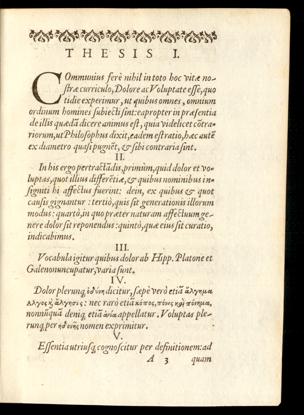 THESIS I.
COmmunius ferè nihil in toto hoc vitæ no-
stræ curriculo, Dolore ac Voluptate esse, quo
tidie experimur, ut quibus omnes, omnium
ordinum homines subiecti sint: eapropter in præsentia
de illis quædā dicere animus est, quia videlicet cōtra-
riorum, ut Philosophus dixit, eadem est ratio, hæc autē
ex diametro quasi pugnēt, & sibi contraria sint.
II.
In his ergo pertractādis, primùm, quid dolor et vo-
luptas, quot illius differētiæ, & quibus nominibus in-
signiti hi affectus fuerint: dein, ex quibus & quot
causis gignantur: tertiò, quis sit generationis illorum
modus: quartò, in quo præter naturam affectuum ge-
nere dolor sit reponendus: quintò, quæ eius sit curatio,
indicabimus.
III.
Vocabula igitur quibus dolor ab Hipp. Platone et
Galeno nuncupatur, varia sunt.
IV.
Dolor plerunq; ὀδύνη dicitur, sæpè verò etiā ἄλγημα
ἄλγος ἢ ἄλγησις: nec rarò etiā κόπος, πόνος καὶ πόνημα,
nonnūquā deniq; etiā ἀνία appellatur. Voluptas ple-
runq; per ἡδονῆς nomen exprimitur.
V.
Essentia utriusq; cognoscitur per definitionem: ad
A 3 quam